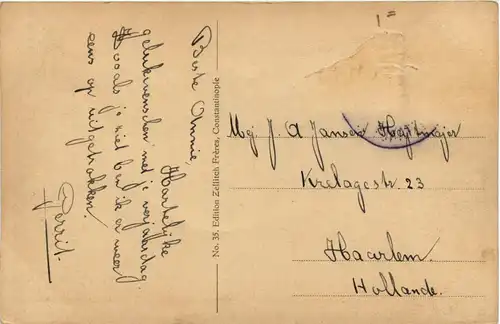 Beste Annie,
Hartelijke
gelukwenschen met je verjaardag.
Zooals je ziet ben ik er weer
eens op uitgetrokken.
Gerrit.
No. 35. Edition Zellitch Frères, Constantinople
Mej. J. A Jansen
Krelagestr. 23
Haarlem
Hollande.